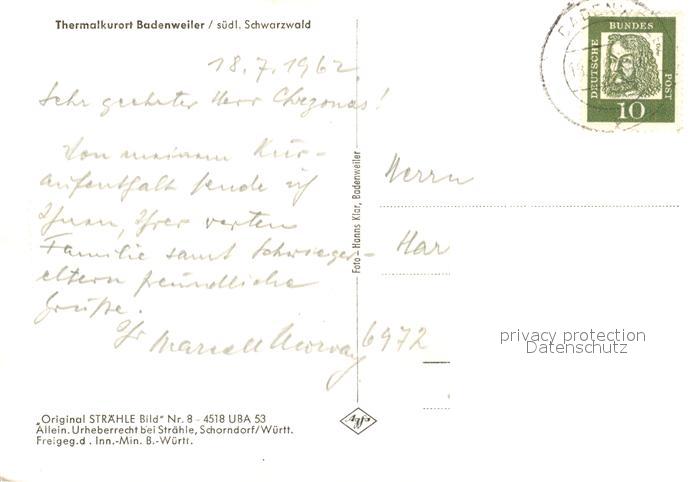 Thermalkurort Badenweiler / südl. Schwarzwald
18.7.1962
Sehr geehrter Herr
Von meinem Kur-
aufenthalt sende ich
Ihnen, Ihrer werten
Familie samt Schwieger-
eltern freundliche
Grüße.
Ihr Marcell
Foto - Hanns Klar, Badenweiler
BADENWEILER
DEUTSCHE
BUNDES
POST
10
Herrn
Har
6972
privacy protection
Datenschutz
„Original STRÄHLE Bild" Nr. 8 - 4518 UBA 53
Allein. Urheberrecht bei Strähle, Schorndorf/Württ.
Freigeg.d. Inn.-Min. B.-Württ.
Agfa